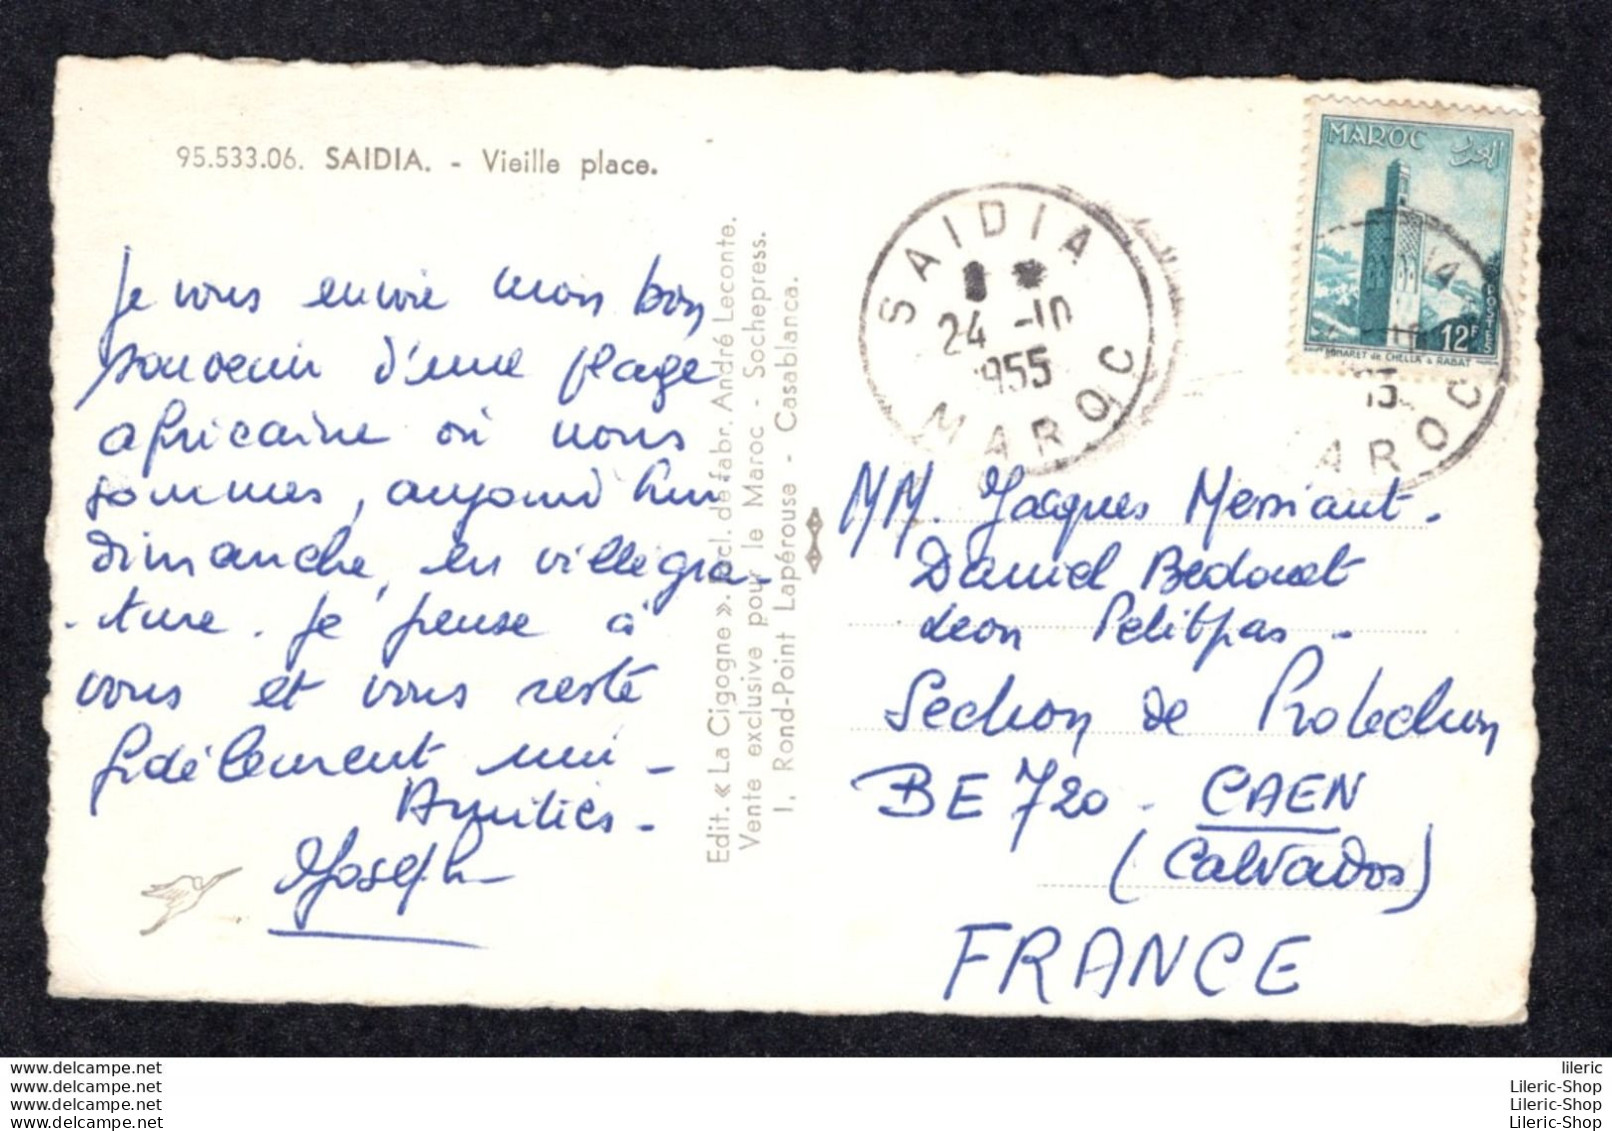 95.533.06. SAIDIA. - Vieille place.
Je vous envoie mon bon
souvenir d'une plage
africaine où nous
sommes, aujourd'hui
dimanche, en villégia-
-ture. Je pense à
vous et vous reste
fidèlement uni -
Amitiés -
Joseph
Edit. « La Cigogne ». Excl. de fabr. André Leconte.
Vente exclusive pour le Maroc - Sochepress.
1, Rond-Point Lapérouse - Casablanca.
SAIDIA
24 -10
1955
MAROC
MAROC
POSTES
12F
MINARET de CHELLA à RABAT
AROC
MM. Jacques Messiant -
Daniel Bedouet
Léon Petitpas -
Section de Protection
BE 720 - CAEN
(Calvados)
FRANCE
www.delcampe.net
www.delcampe.net
www.delcampe.net
www.delcampe.net
lileric
Lileric-Shop
Lileric-Shop
Lileric-Shop